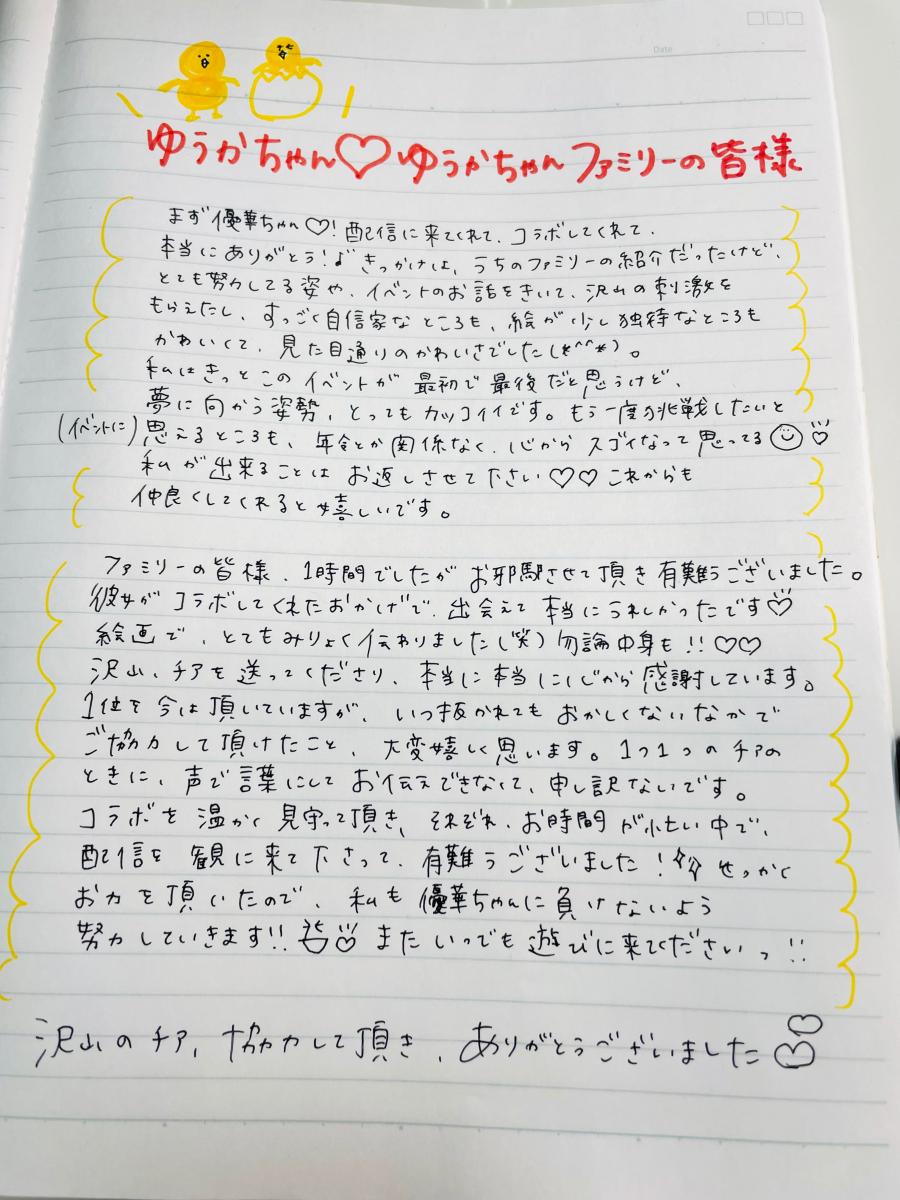 Date
ゆうかちゃん♡ゆうかちゃんファミリーの皆様
まず優華ちゃん♡!配信に来てくれて、コラボしてくれて、
本当にありがとう!♪きっかけは、うちのファミリーの紹介だったけど、
とても努力してる姿や、イベントのお話をきいて、沢山の刺激を
もらえたし、すっごく自信家なところも、絵が少し独特なところも
かわいくて、見た目通りのかわいさでした(*^^*)。
私はきっとこのイベントが最初で最後だと思うけど、
夢に向かう姿勢、とってもカッコイイです。もう一度挑戦したいと
(イベントに)思えるところも、年令とか関係なく、心からスゴイなって思ってる☺♡
私が出来ることはお返しさせて下さい♡♡これからも
仲良くしてくれると嬉しいです。
ファミリーの皆様、1時間でしたがお邪魔させて頂き有難うございました。
彼女がコラボしてくれたおかげで、出会えて本当にうれしかったです♡
絵画で、とてもみりょく伝わりました(笑)勿論中身も!!♡♡
沢山、チアを送ってくださり、本当に本当に心から感謝しています。
1位を今は頂いていますが、いつ抜かれてもおかしくないなかで
ご協力して頂けたこと、大変嬉しく思います。1つ1つのチアの
ときに、声で言葉にしてお伝えできなくて、申し訳ないです。
コラボを温かく見守って頂き、それぞれ、お時間が忙しい中で、
配信を観に来て下さって、有難うございました!せっかく
お力を頂いたので、私も優華ちゃんに負けないよう
努力していきます!!♡またいつでも遊びに来てくださいっ!!
沢山のチア、協力して頂き、ありがとうございました♡♡